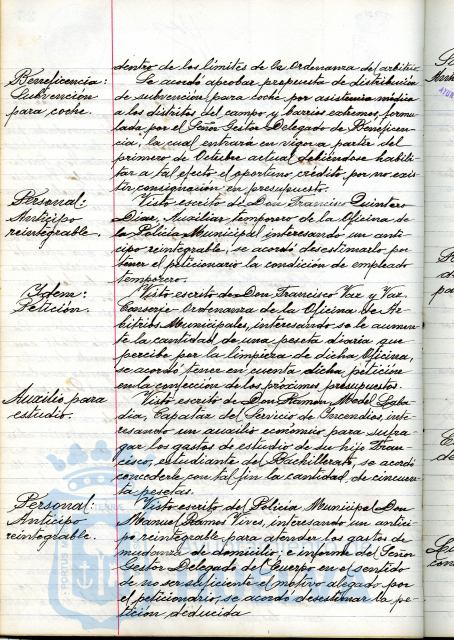 dentro de los límites de la Ordenanza del arbitrio
Beneficencia:
Subvención
para coche.
Se acordó aprobar propuesta de distribución
de subvención para coche por asistencia médica
a los distritos del campo y barrios extremos, formu-
lada por el Señor Gestor Delegado de Beneficen-
cia, la cual entrará en vigor a partir del
primero de Octubre actual debiéndose habili-
tar a tal efecto el oportuno crédito, por no exis-
tir consignación en presupuesto.
Personal:
Anticipo
reintegrable.
Visto escrito de Don Francisco Quintero
Díaz, Auxiliar temporero de la Oficina de
la Policía Municipal interesando un anti-
cipo reintegrable, se acordó desestimarlo por
tener el peticionario la condición de empleado
temporero.
Ydem:
Petición.
Visto escrito de Don Francisco Vaz y Vaz,
Conserje-Ordenanza de la Oficina de Ar-
bitrios Municipales, interesando se le aumen-
te la cantidad de una peseta diaria que
percibe por la limpieza de dicha Oficina,
se acordó tener en cuenta dicha petición
en la confección de los próximos presupuestos.
Auxilio para
estudio.
Visto escrito de Don Ramón Model Laba-
dia, Capataz del Servicio de Incendios inte-
resando un auxilio económico para sufra-
gar los gastos de estudio de su hijo Fran-
cisco, estudiante del Bachillerato, se acordó
concederle con tal fin la cantidad de cincuen-
ta pesetas.
Personal:
Anticipo
reintegrable.
Visto escrito del Policía Municipal Don
Manuel Ramos Vives, interesando un antici-
po reintegrable para atender los gastos de
mudanza de domicilio; e informe del Señor
Gestor Delegado del Cuerpo en el sentido
de no ser suficiente el motivo alegado por
el peticionario, se acordó desestimar la pe-
tición deducida